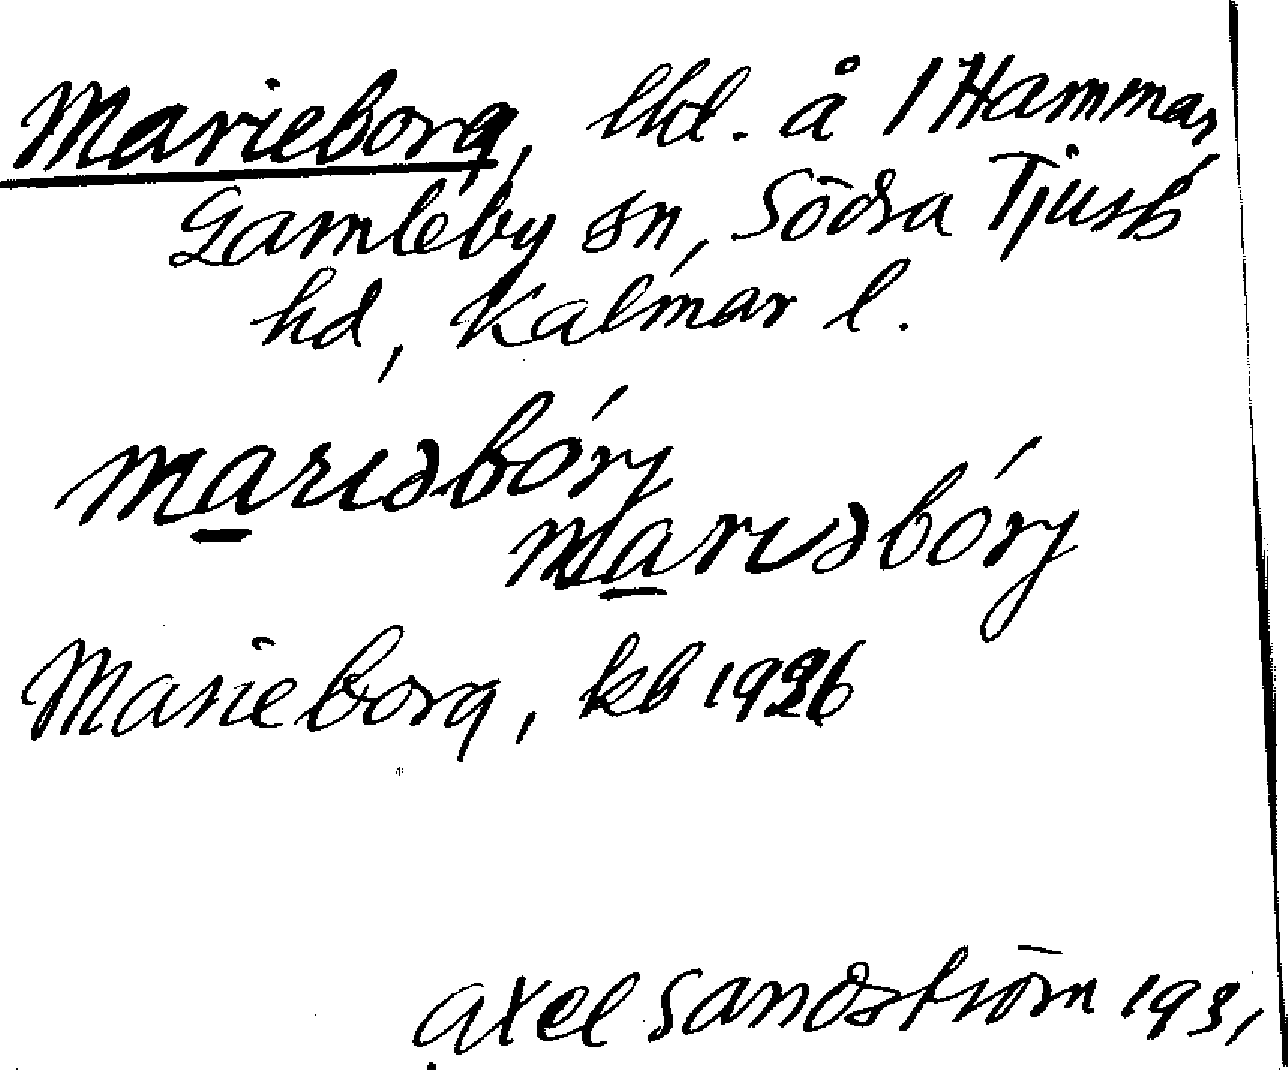 Marieborg, lhd. å 1 Hammar,
Gamleby sn, Södra Tjust
hd, Kalmar l.
marıəbórj
marıəbórj
Marieborg, kb 1926
Axel Sandström 1931